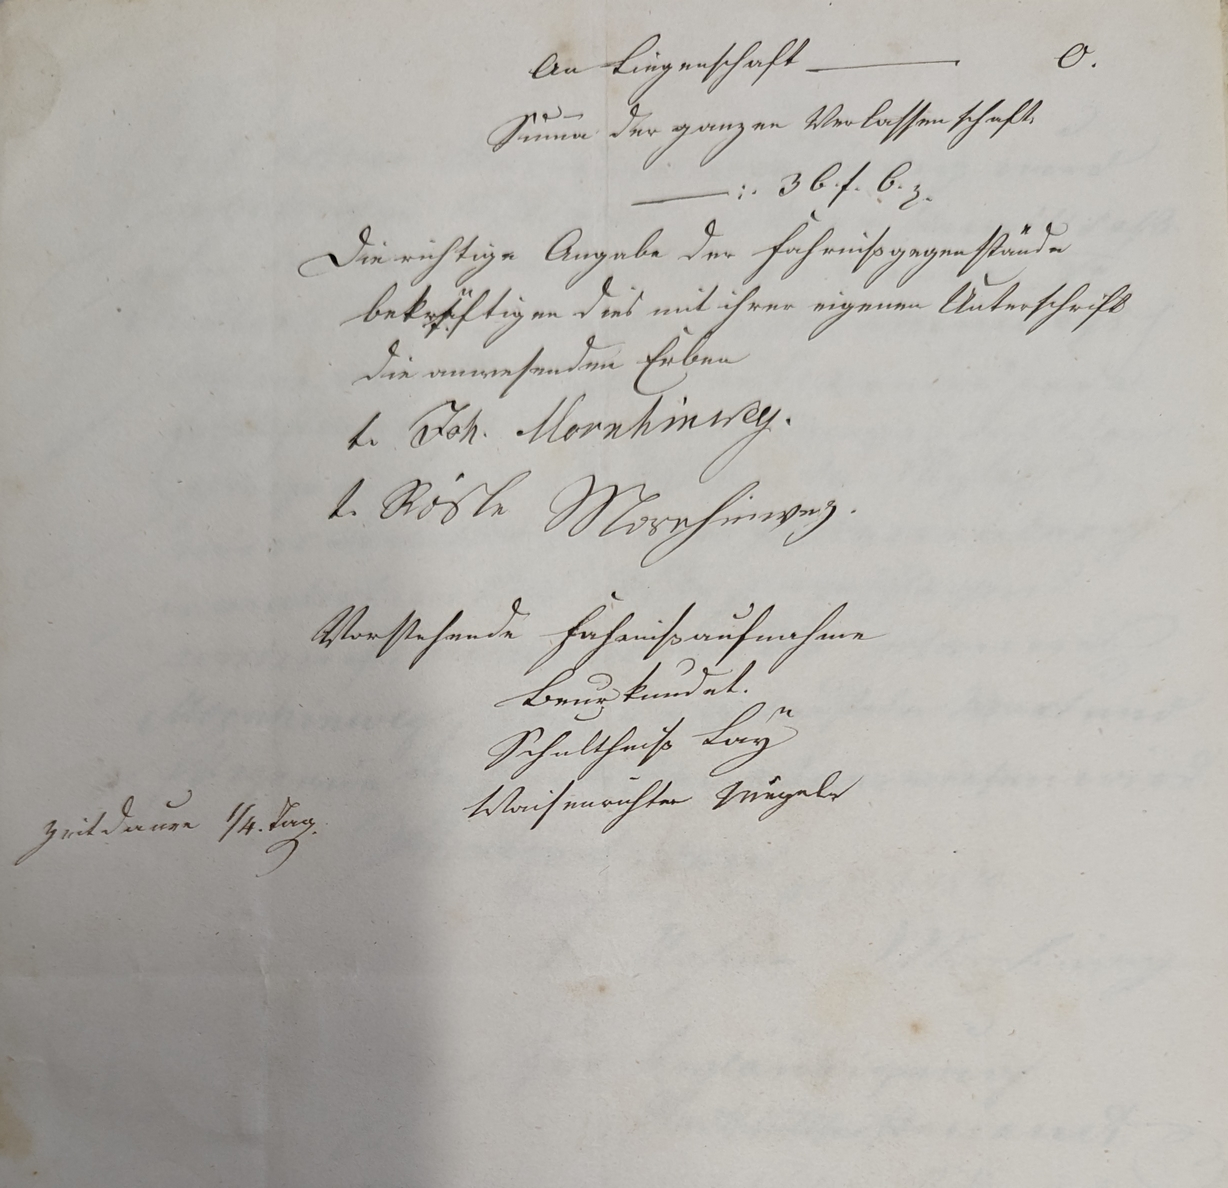 An Liegenschaft ——— 0.
Summa der ganzen Verlassenschaft.
——— :. 36 f. 6. z.
Die richtige Angabe der Fahrnißgegenstände
bekräftigen dies mit ihrer eigenen Unterschrift
die anwesenden Erben
t. Joh. Mornhinweg.
t. Rösle Mornhinweg.
Vorstehende Fahrnißaufnahme
Beurkundet.
Schultheiß Lay
Waisenrichter
Zeitdauer 1/4. Tag.